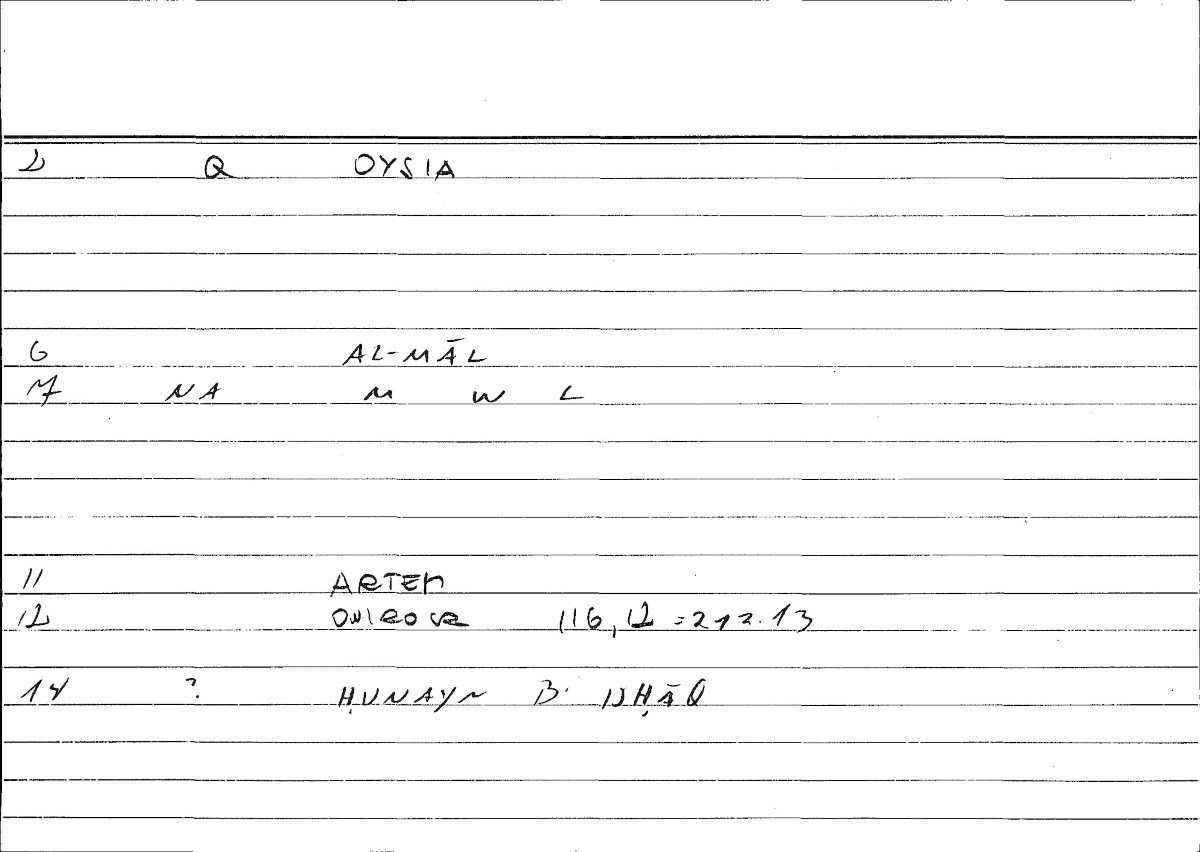 2 Q OYSIA
6 AL-MĀL
7 NA M W L
11 ARTEM
12 ONIROCR 116,12 =212.13
14 ? ḤUNAYN B. ISḤĀQ